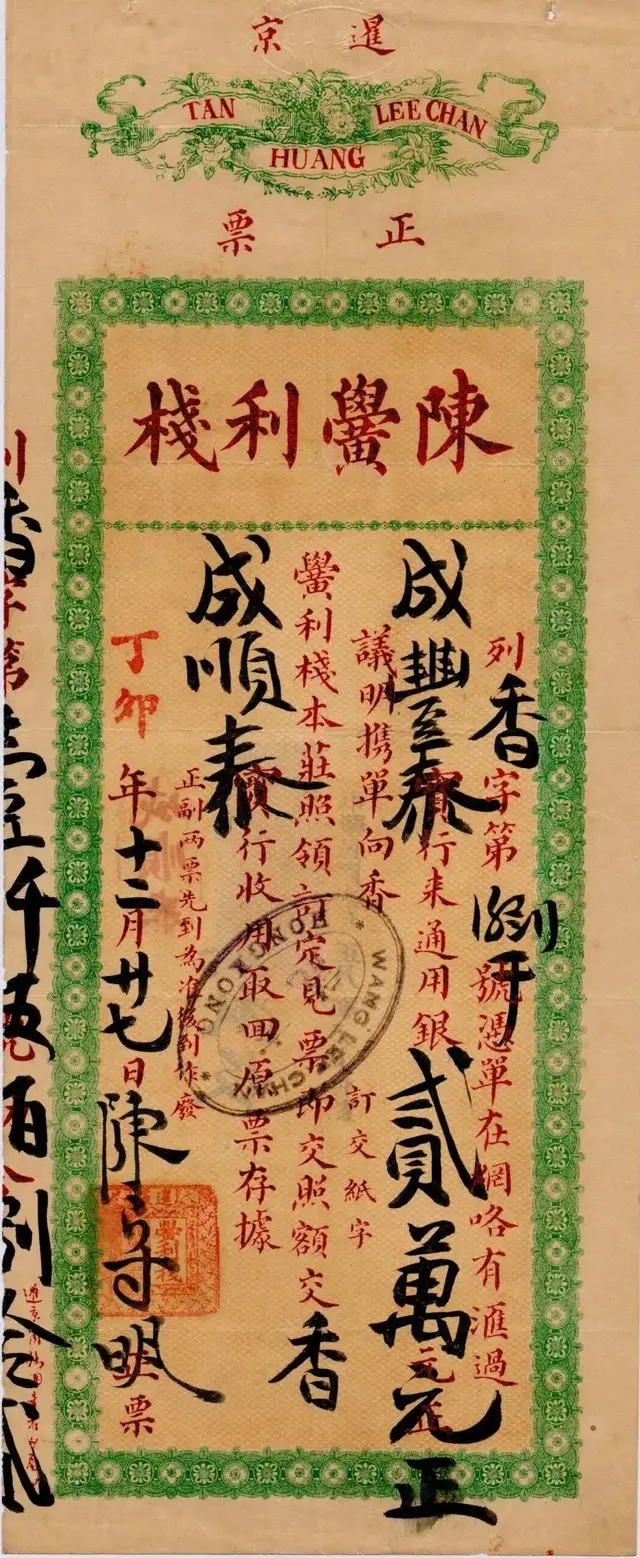 暹京
TAN
LEE CHAN
HUANG
正票
陳黌利棧
列香字第 號憑單在網咯有滙過
成豐泰寶行来通用銀貳萬元正
元正
訂交紙字
議明携單向香
黌利棧本莊照領 定見票即交照額交香
成順泰寶行收用取回原票存據
正副两票先到為准後到作廢
丁卯年十二月廿七日陳守明
票
HONGKONG
WANG LEE CHAN
列香字第 千五佰捌拾貳